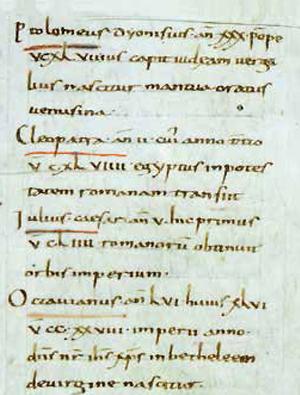 Ptolomeus dyonisius añ xxx pompe
vcxl viiiius capit iudeam uergi
lius nascitur mantua oratius
uenusina ·
Cleopatra añ ii cui anno tertio
v cxl viiii · egyptus in potes
tatem romanam transiit
Iulius caesar añ v hic primus
v cl iiii romanorū obtinuit
orbis imperium ·
Octavianus añ lvi huius xlvi
v cc xxviii imperii anno ·
dñs nr̄ ihs xp̄s in bethleem
de uirgine nascitur